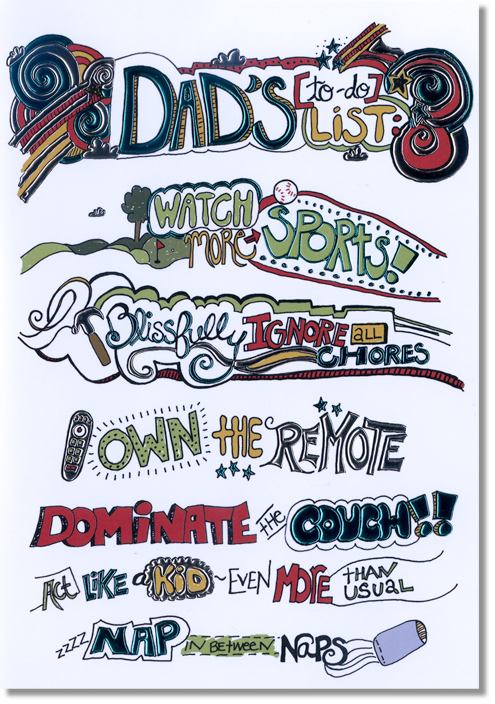 DAD'S [to-do] LiST:
WATCH MORE SPORTS!
Blissfully IGNORE ALL CHORES
OWN tHE REMOTE
DOMiNATE tHE COUCH!!
Act LiKE a KiD ~ EVEN MORE tHAN USUAL
zzzz NAP IN BETWEEN NaPS